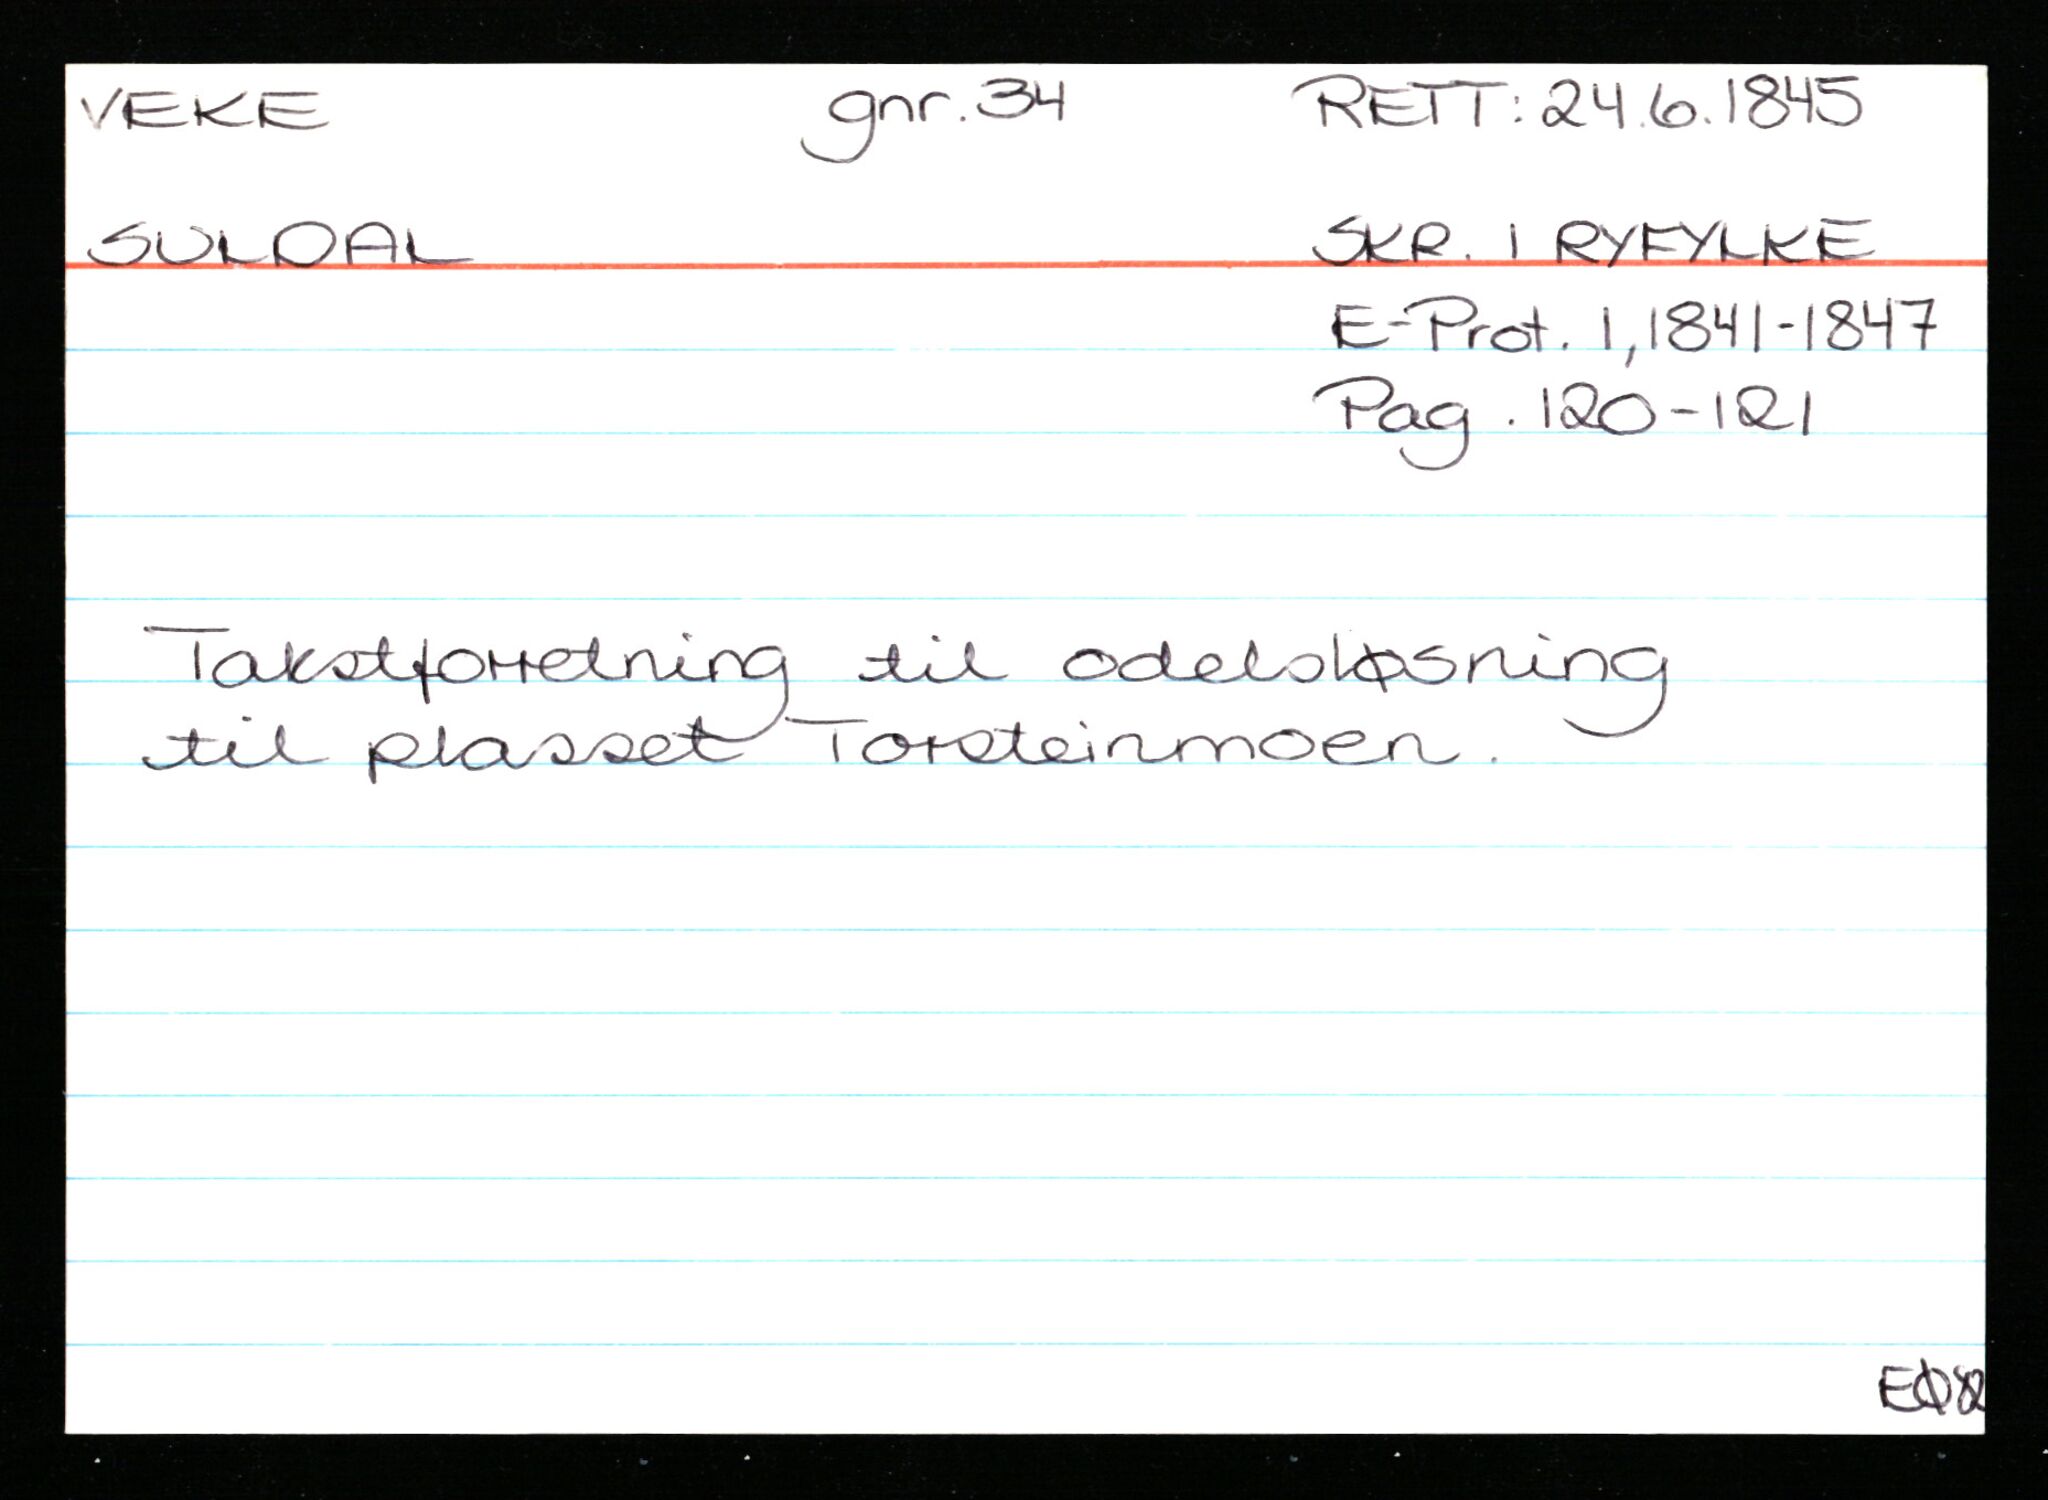 VEKE gnr. 34 RETT: 24.6.1845
SULDAL SKR. I RYFYLKE
E-Prot. 1, 1841-1847
Pag. 120-121
Takstforretning til odelsløsning
til plasset Torsteinmoen.
EØ82